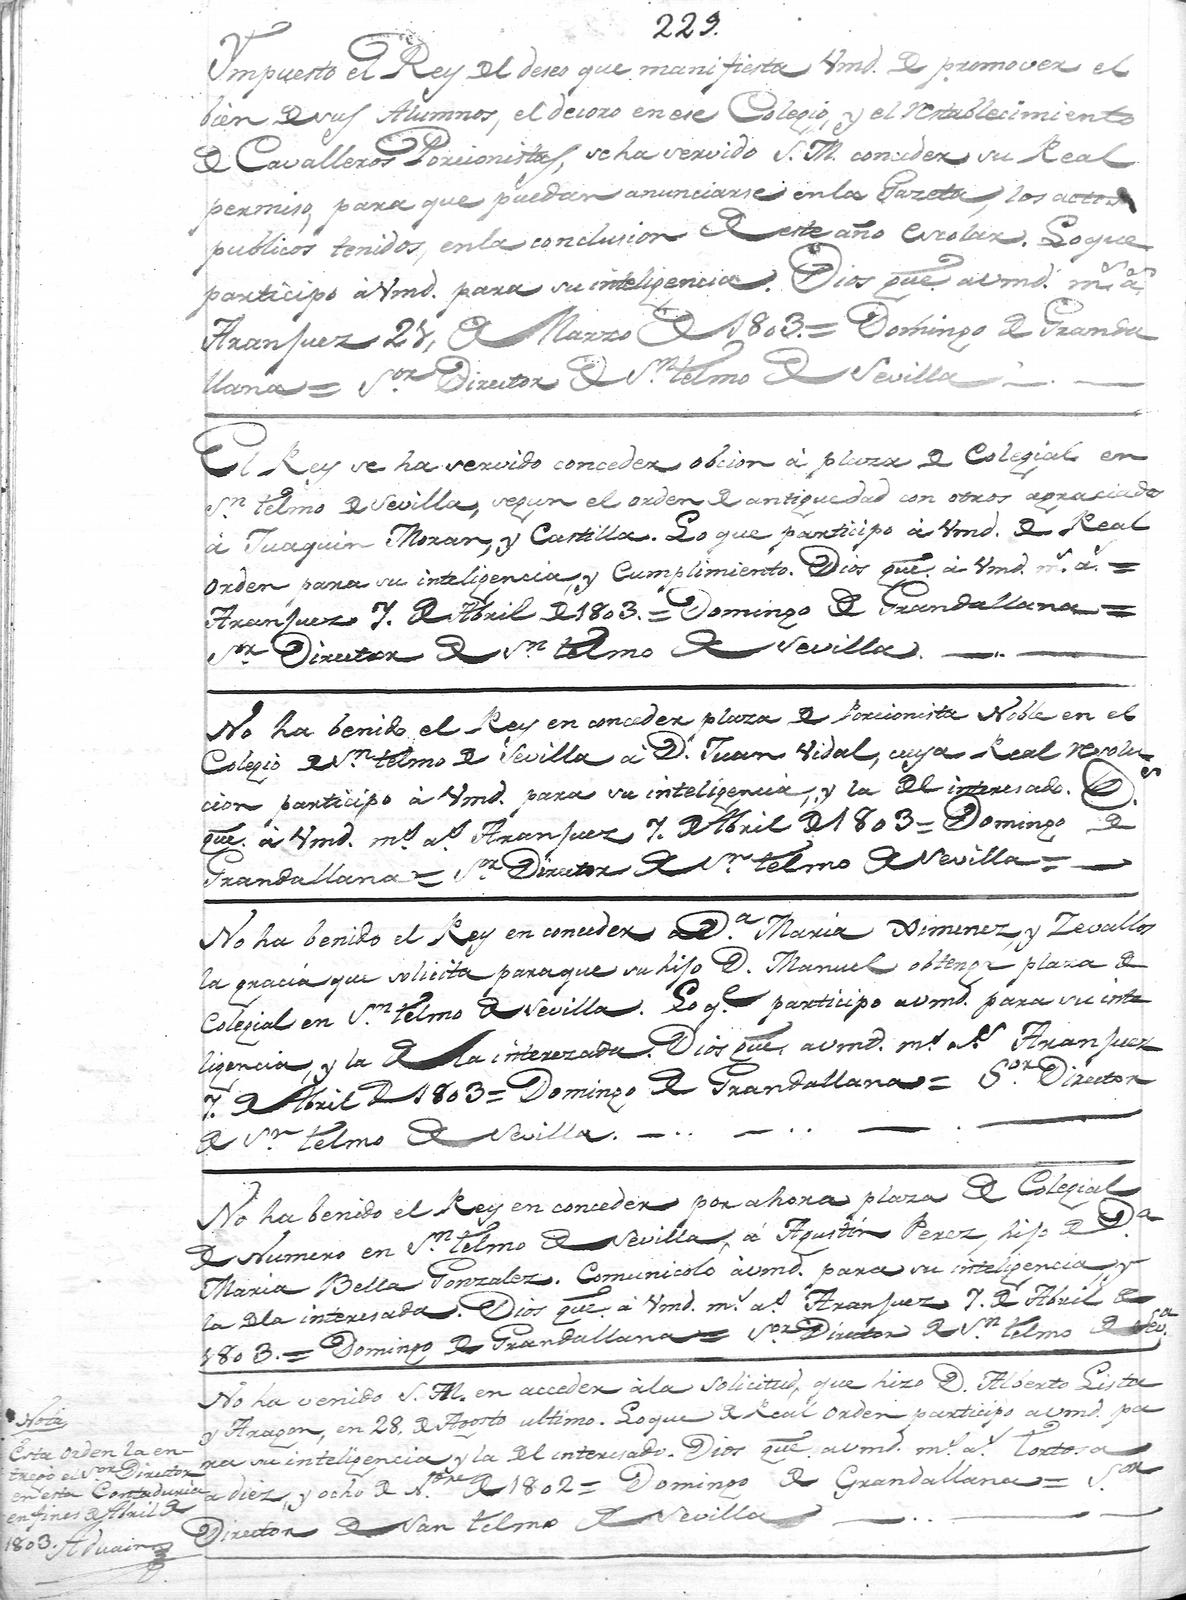 229.
Ympuesto el Rey del deseo que manifiesta Vmd. de promover el
bien de sus Alumnos, el decoro en ese Colegio, y el restablecimiento
de Cavalleros Porcionistas, se ha servido S. M. conceder su Real
permiso, para que puedan anunciarse en la Gazeta, los actos
publicos tenidos, en la conclusion de este año escolar. Lo que
participo à Vmd. para su inteligencia. Dios gue. a vmd. ms. as.
Aranjuez 28, de Marzo de 1803.= Domingo de Granda
llana= Sor. Director de Sn. telmo de Sevilla
El Rey se ha servido conceder obcion à plaza de Colegial en
Sn. telmo de Sevilla, segun el orden de antiguedad con otros agraciados
à Juaquin Moran, y Castilla. Lo que participo à Vmd. de Real
orden para su inteligencia, y Cumplimiento. Dios gue. à Vmd. ms. as.=
Aranjuez 7. de Abril de 1803.= Domingo de Grandallana=
Sor. Director de Sn. telmo de Sevilla.
No ha benido el Rey en conceder plaza de Porcionista Noble en el
Colegio de Sn. telmo de Sevilla à D. Juan Vidal, cuya Real resolu
cion participo à Vmd. para su inteligencia, y la del interesado. Ds.
gue. à Vmd. ms. as. Aranjuez 7. de Abril de 1803= Domingo de
Grandallana= Sor. Director de Sn. telmo de Sevilla=
No ha benido el Rey en conceder a Da. Maria Ximenez, y Zevallos
la gracia que solicita para que su hijo D. Manuel obtenga plaza de
Colegial en Sn. telmo de Sevilla. Lo qe. participo a vmd. para su inte
ligencia, y la de la interezada. Dios gue. a vmd. ms. as. Aranjuez
7. de Abril de 1803= Domingo de Grandallana= Sor. Director
de Sn. telmo de Sevilla.
No ha benido el Rey en conceder por ahora plaza de Colegial
de Numero en Sn. telmo de Sevilla, à Agustin Perez, hijo de Da.
Maria Bella Gonzalez. Comunicolo à vmd. para su inteligencia, y
la dla interesada. Dios gue. à Vmd. ms. as. Aranjuez 7. de Abril de
1803.= Domingo de Grandallana= Sor. Director de Sn. telmo de Seva.
No ha venido S. M. en acceder à la solicitud, que hizo D. Alberto Lista
y Aragon, en 28. de Agosto ultimo. Lo que de Real orden participo a vmd. pa
ra su inteligencia y la del interesado. Dios gue. a vmd. ms. as. Tortosa
a diez, y ocho de Nore. de 1802= Domingo de Grandallana= Sor.
Director de San telmo de Sevilla
Nota
Esta orden la en-
tregó el Sor. Director
en esta Contaduria
en fines de Abril de
1803.